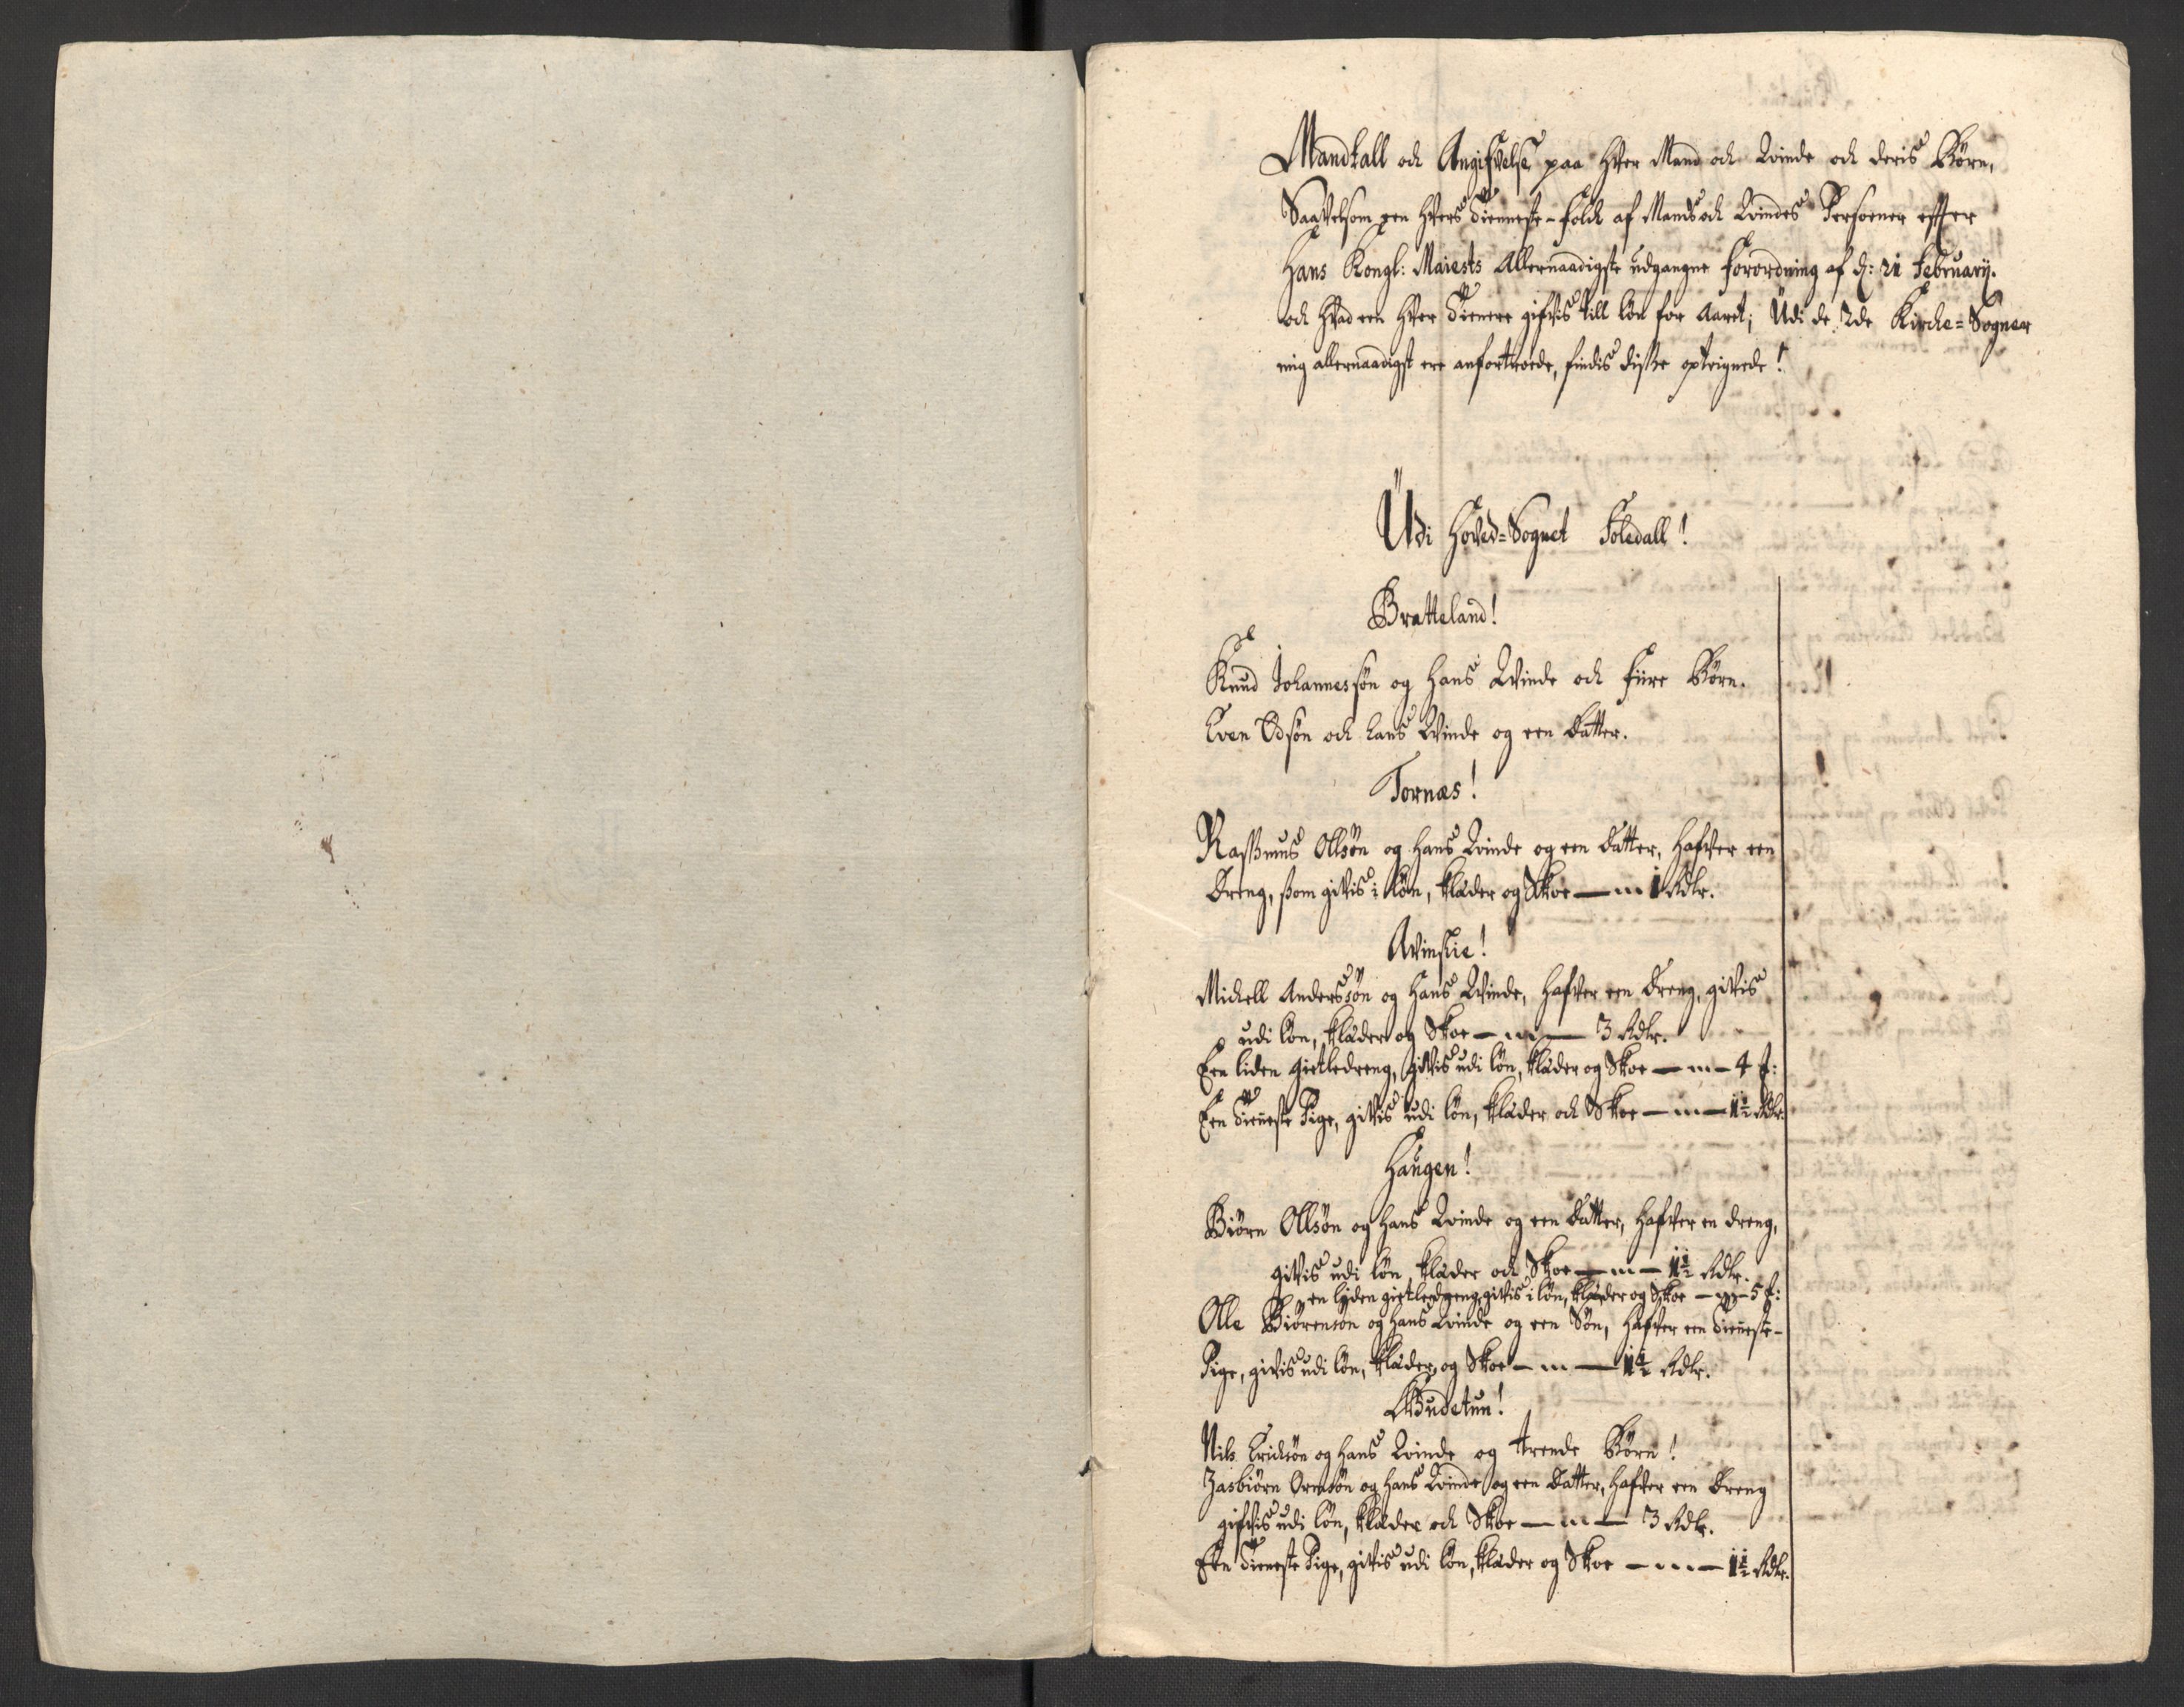 Mandtall och Angifvelse paa hver Mand och Qvinde och deris Børn,
Saavelsom een hvers Dienneste-folch af Mands och Qvindes Persoener effter
Hans Kongl: Maiests Allernaadigste udgangne forordning af d: 21 February.
och hvad een hver Dienere gifvis till løn for Aaret; Udi de 2de Kirche-Sogner
mig allernaadigst ere anfortroede, findis disse opteignede!
Udi Hoved-Sognet Soledall!
Bratteland!
Knud Johannessøn og hans Qvinde och fiire Børn.
Sven Odsøn och hans Qvinde og een datter.
Tornæs!
Rassmus Ollsøn og hans Qvinde og een datter, hafver een
dreng, som givis i løn, klæder og Skoe — 1 Rdlr.
Michell Anderssøn og hans Qvinde, hafver een dreng, givis
udi løn, klæder og Skoe — 3 Rdlr.
Een liden gietledreng, givis udi løn, klæder og Skoe — 4
Een dieneste Pige, givis udi løn, klæder och Skoe — 1½ Rdlr.
Haugen!
Biørn Ollsøn og hans Qvinde og een datter, hafver en dreng,
givis udi løn, klæder och Skoe — 1½ Rdlr.
en lyden gietledreng givis i løn, klæder og Skoe — 5
Olle Biørensøn og hans Qvinde og een Søn, hafver een dieneste-
Pige, givis udi løn, klæder, og Skoe — 1½ Rdlr.
Nils Erichsøn og hans Qvinde og trende Børn!
Zasbiørn Ormsøn og hans Qvinde og een datter, hafver een dreng
gifvis udi løn, klæder och Skoe — 3 Rdlr.
Een dieneste Pige, givis udi løn, klæder og Skoe — 1½ Rdlr.